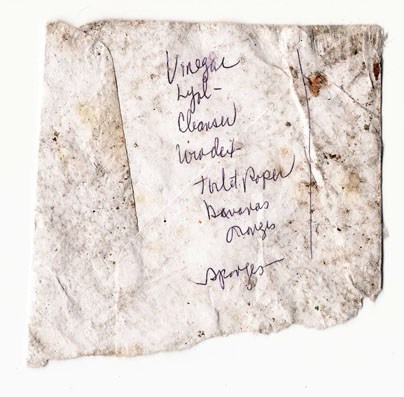 Vinegar
Lysol -
Cleanser
Windex
Toilet Paper
Bananas
Oranges
Sponges